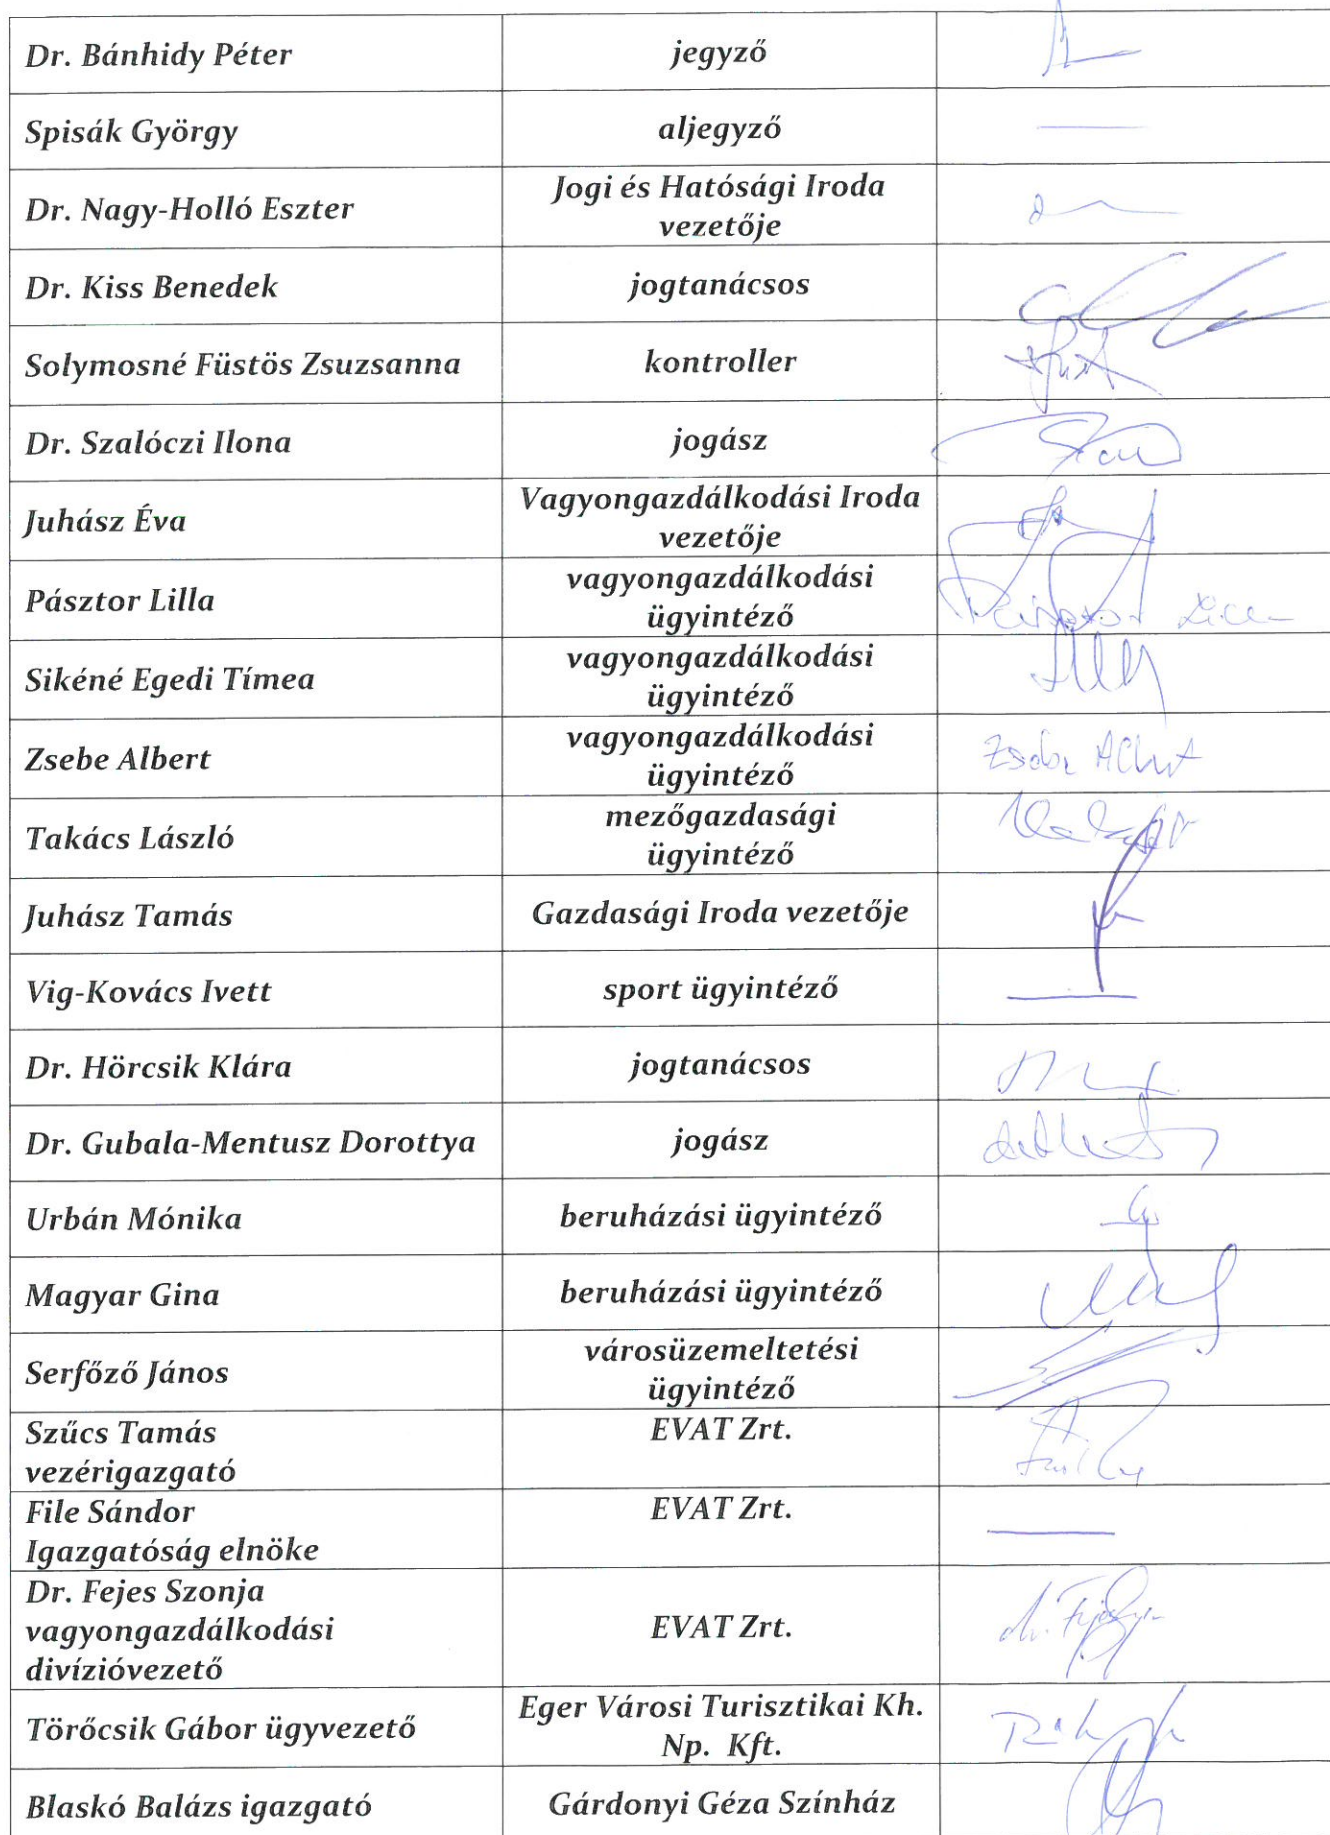 Dr. Bánhidy Péter
jegyző
Spisák György
aljegyző
Dr. Nagy-Holló Eszter
Jogi és Hatósági Iroda
vezetője
Dr. Kiss Benedek
jogtanácsos
Solymosné Füstös Zsuzsanna
kontroller
Dr. Szalóczi Ilona
jogász
Juhász Éva
Vagyongazdálkodási Iroda
vezetője
Pásztor Lilla
vagyongazdálkodási
ügyintéző
Sikéné Egedi Tímea
vagyongazdálkodási
ügyintéző
Zsebe Albert
vagyongazdálkodási
ügyintéző
Zsebe Albert
Takács László
mezőgazdasági
ügyintéző
Juhász Tamás
Gazdasági Iroda vezetője
Vig-Kovács Ivett
sport ügyintéző
Dr. Hörcsik Klára
jogtanácsos
Dr. Gubala-Mentusz Dorottya
jogász
Urbán Mónika
beruházási ügyintéző
Magyar Gina
beruházási ügyintéző
Serfőző János
városüzemeltetési
ügyintéző
Szűcs Tamás
vezérigazgató
EVAT Zrt.
File Sándor
Igazgatóság elnöke
EVAT Zrt.
Dr. Fejes Szonja
vagyongazdálkodási
divízióvezető
EVAT Zrt.
Törőcsik Gábor ügyvezető
Eger Városi Turisztikai Kh.
Np. Kft.
Blaskó Balázs igazgató
Gárdonyi Géza Színház